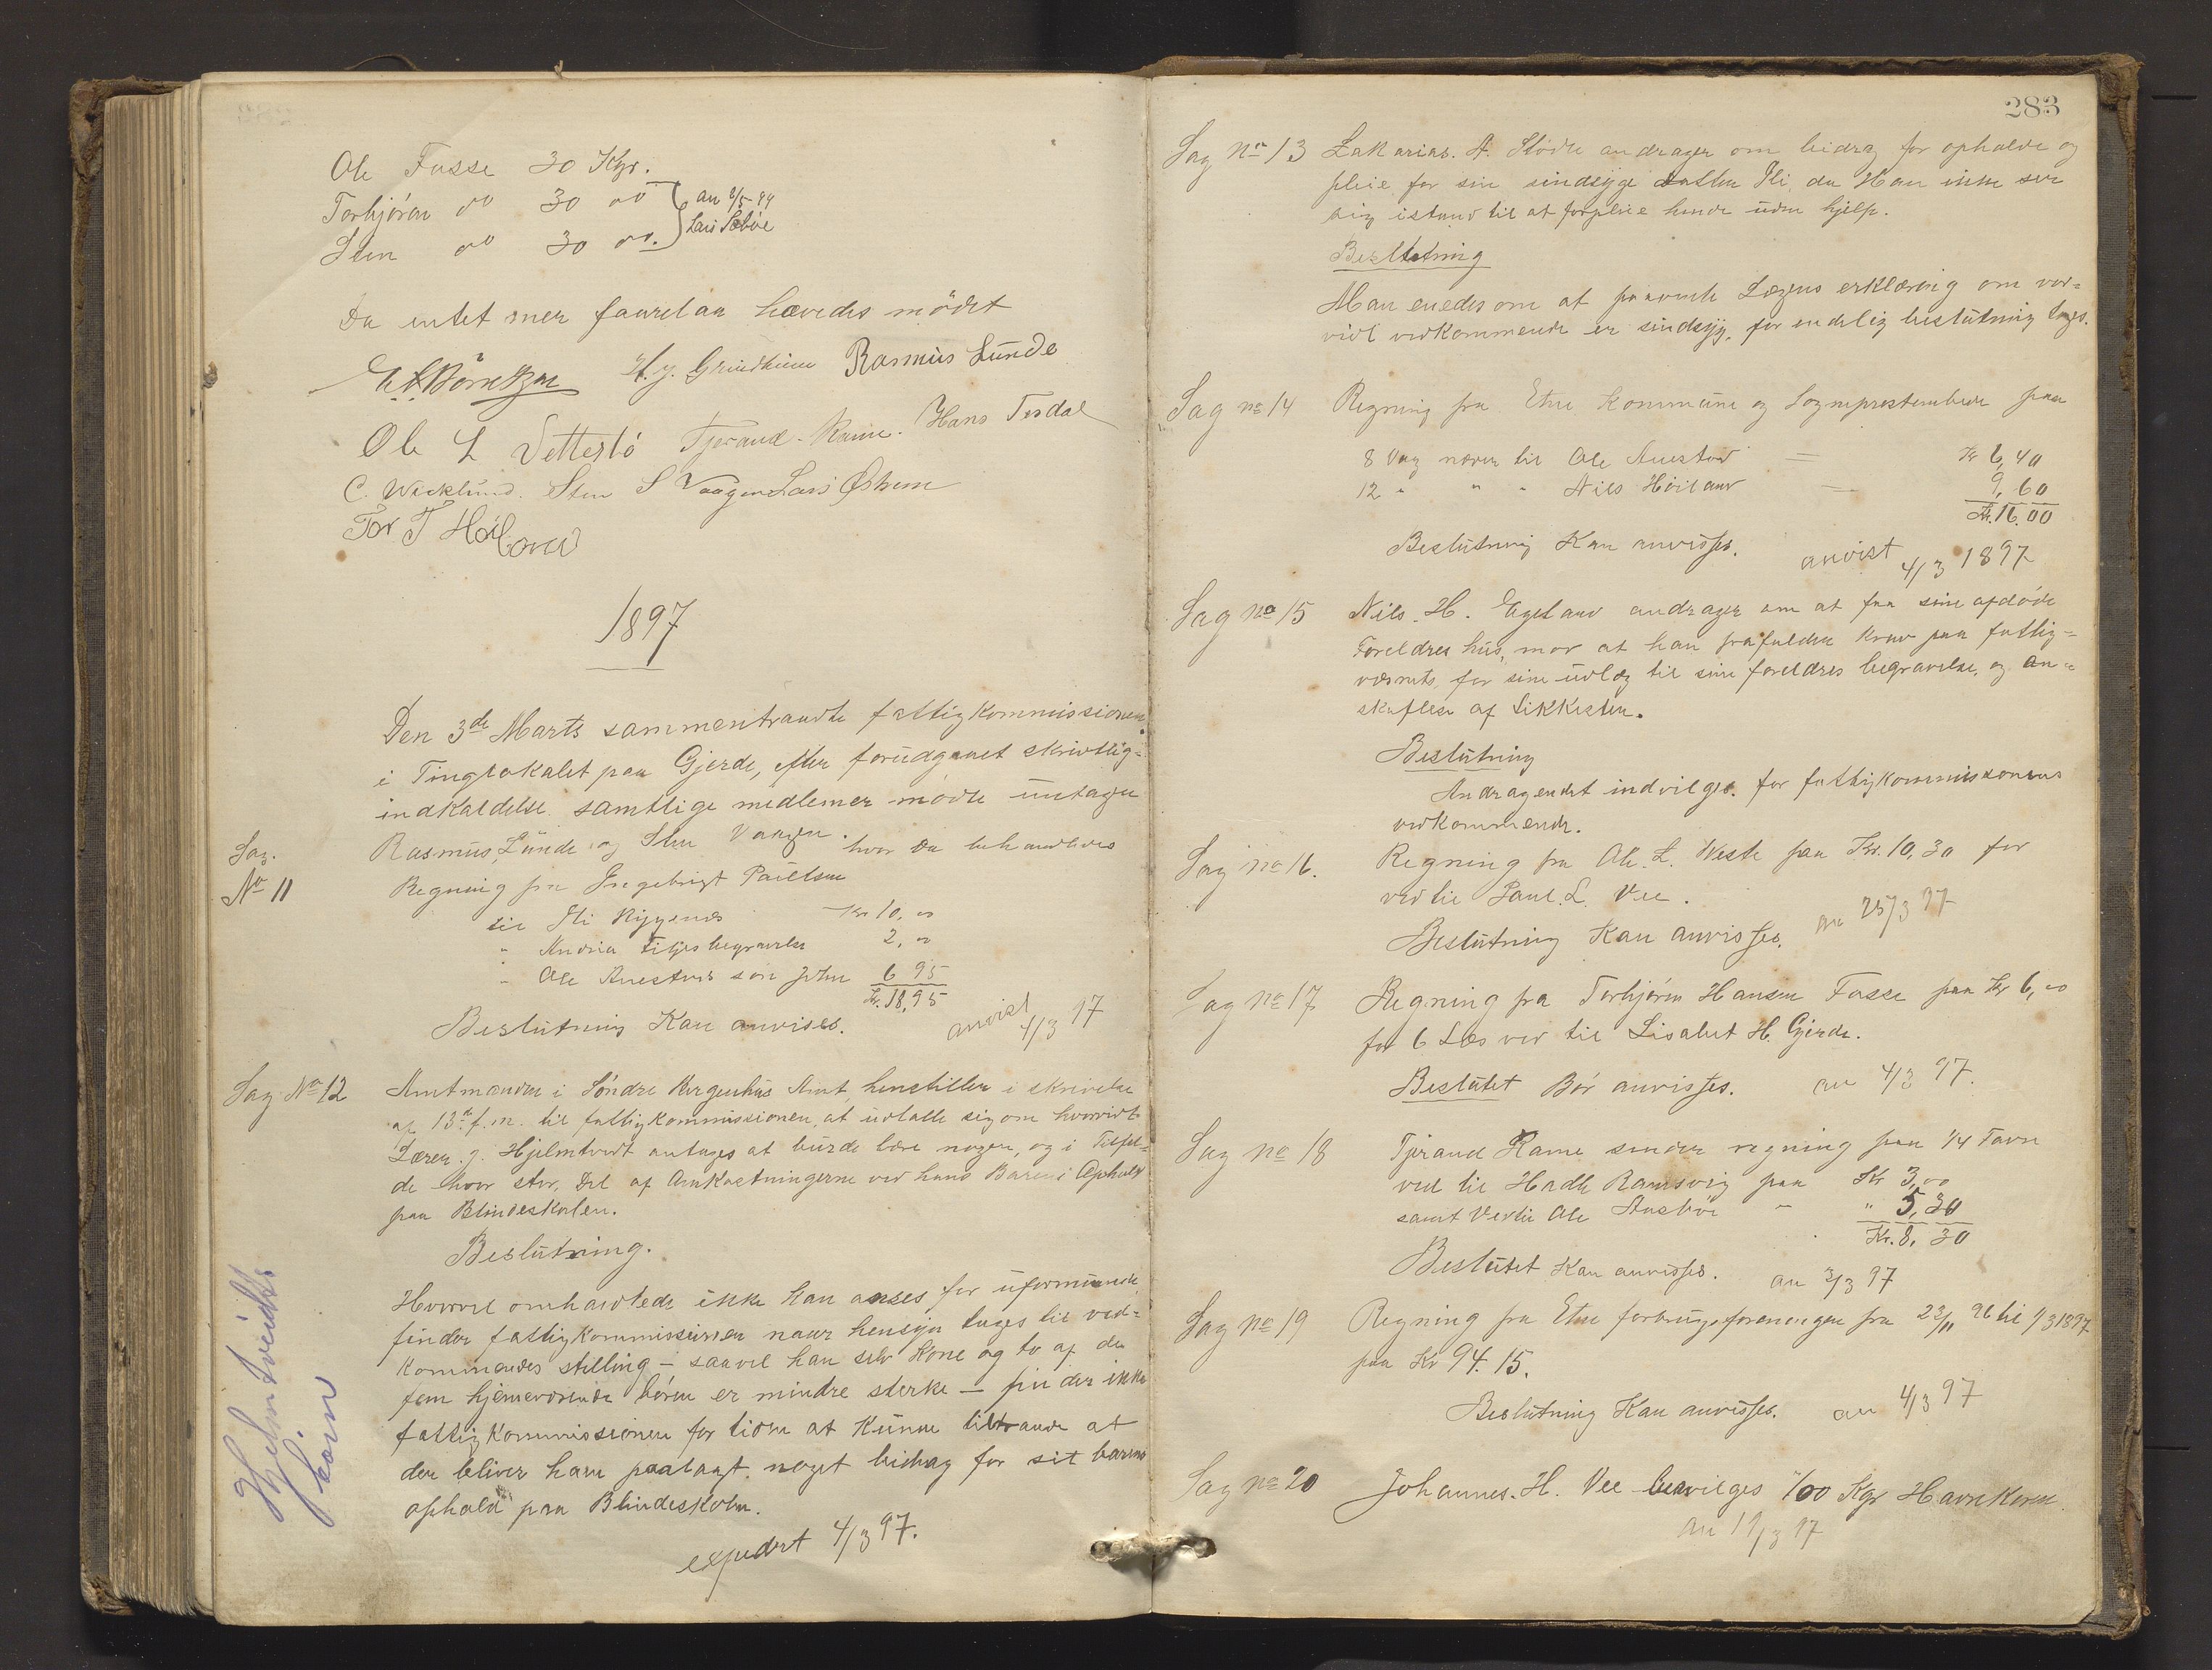 Ole Fosse 30 Kgr.
Torbjörn do 30 do
Sten do 30 do.
an 8/5-97
Lars Sæböe
Da intet mer faarelaa hævedes mödet
H. J. Grindheim Rasmus Lunde
Ole L Vettestö Tjerand Rame. Hans Tesdal
C. Wacklund. Sten S Vaagen Lars Østrem
Tor T Höiland
1897
Den 3de Marts sammentraadte fattigkommissionen
i Tinglokalet paa Gjerde, efter forudgaaet skrivtlig-
indkaldelse samtlige medlemer mödte untagen
Rasmus Lunde og Sten Vaagen. hvor da behandledes
Sag.
No 11
Regning fra Ingebrigt Paulsen
til Ili Kr 10,00
" begravelse 2,00
" Ole sön John 6 95
Kr. 18,95
Beslutning Kan anvises.
anvist 4/3 97
Sag No 12
Amtmanden i Söndre Bergenhus Amt, henstiller i skrivelse
af 13de f.m. til fattigkommissionen, at udtalle sig om hvorvidt
Lærer J. Hjelmtvedt antages at burde bære nogen, og i Tilfel-
de hvor stor, Del af Omkostningerne ved hans Barns Ophold
paa Blindeskolen.
Beslutning.
Hvorvel omhandlede ikke kan anses for uformuende,
finder fattigkommissionen naar hensyn tages til ved-
kommendes stilling - saavel han selv kone og to af de
fem hjemeværende börn er mindre sterke - finder ikke
fattigkommissionen for tiden at kunne tilraade at
der bliver ham paalagt noget bidrag for sit barns
ophold paa Blindeskolen.
expedert 4/3 97.
Hjelmtveidts
barn
283
Sag no 13 Zakarias. A. Stödle andrager om bidrag for ophold og
pleie for sin sindsyge datter Ili, da Han ikke ser
sig istand til at forpleie hende uden hjelp.
Beslutning
Man enedes om at paavente Lægens erklæring om vor-
vidt vedkommende er sindsyg, för endelig beslutning tages.
Sag no 14 Regning fra Etne Kommune og Sogneprestembede paa
8 Vog næver til Ole = Kr 6,40
12 " " " Nils Höiland = 9,60
Kr. 16,00
Beslutning Kan anvisses.
anvist 4/3 1897
Sag no 15 Nils. H. Egeland andrager om at faa sine afdöde
Foreldres hus, mod at han frafalder krav paa fattig-
væsnets, for sine udlæg til sine foreldres begravelse, og an-
skaffelse af Likkisten.
Beslutning
Andragendet indvilges. for fattigkommissionens
vedkommende.
Sag no 16. Regning fra Ole. L. Weste paa Kr. 10,30 for
ved til Paul. L. Vee.
Beslutning Kan anvisses.
an 25/3 97
Sag no 17 Regning fra Torbjörn Hansen Fosse paa Kr 6,00
for 6 Læs ved til Lisabet H. Gjerde.
Beslutet Bör anvisses. an 4/3 97.
Sag no 18 Tjerand Rame sender regning paa 1/4 Favn
ved til Hadle Ramsvig paa Kr 3,00
samt Ved til Ole " " 5,30
Kr. 8,30
Beslutet Kan anvisses. an 3/3 97
Sag no 19 Regning fra Etne forbrugsforeningen fra 23/11 96 til 1/3 1897
paa Kr 94.15.
Beslutning Kan anvisses. an 4/3 97
Sag no 20 Johannes. H. Vee bevilges 100 Kgr Havrekorn.
an 19/3 97